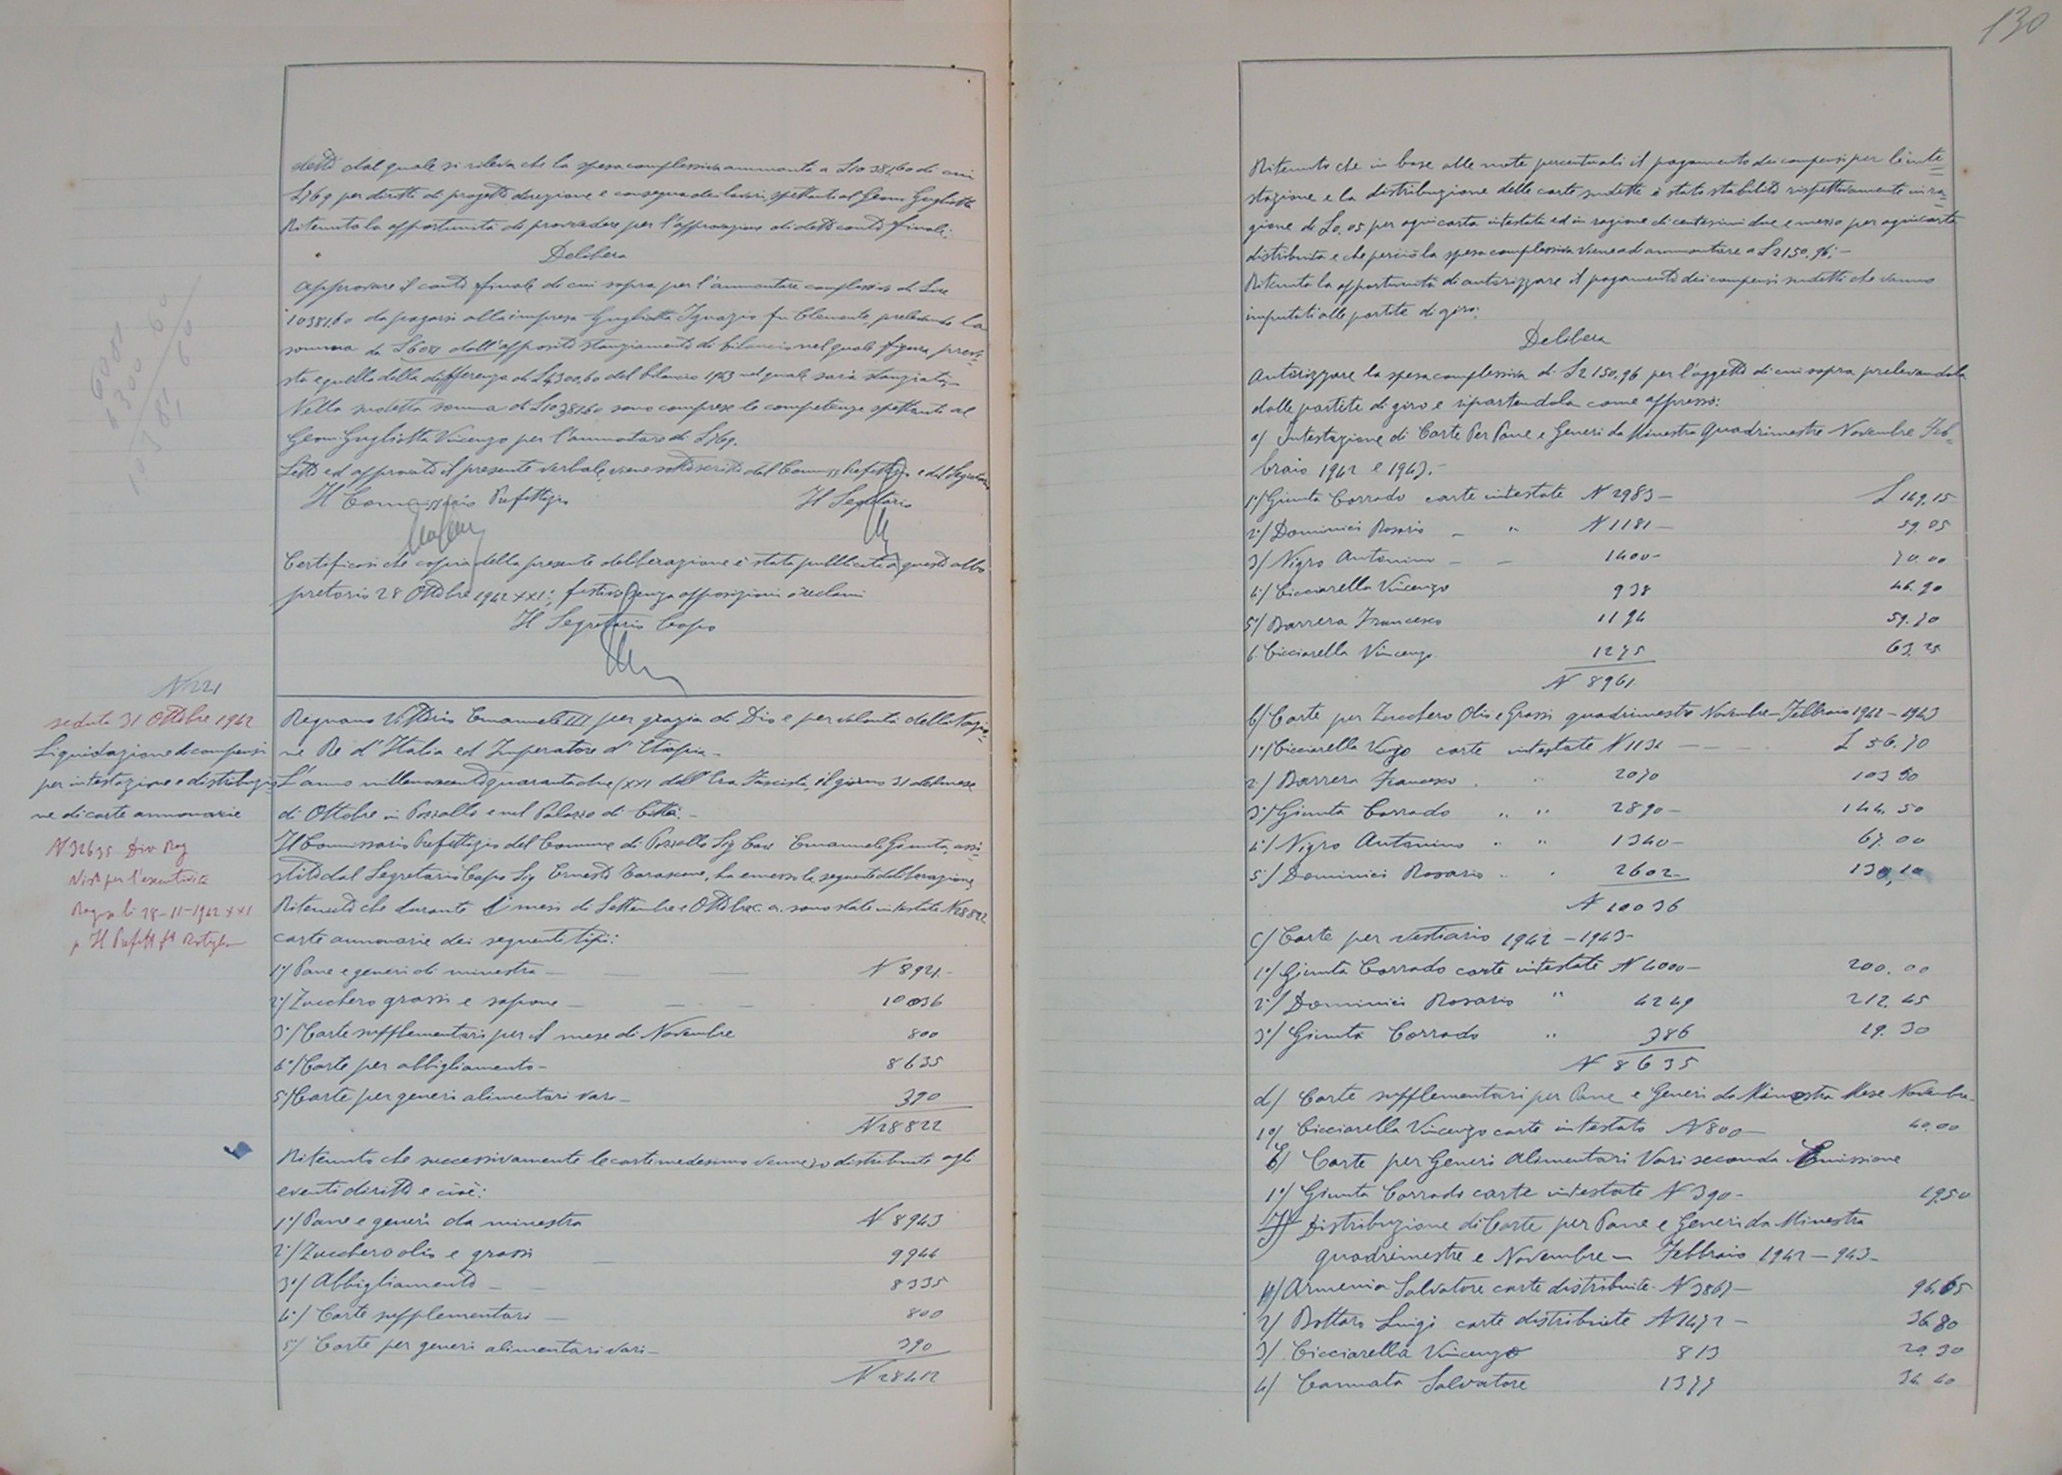 130
detto dal quale si rileva che la spesa complessiva ammonta a £10381,60 di cui
£769 per diritti di progetto direzione e consegna dei lavori, spettanti al Geom Gugliotta
Ritenuta la opportunità di provvedere per l'approvazione di detto conto finale;
Delibera
Approvare il conto finale di cui sopra per l'ammontare complessivo di Lire
10381,60 da pagarsi alla impresa Gugliotta Ignazio fu Clemente, prelevando la
somma di £6081 dall'apposito stanziamento di bilancio nel quale figura previ=
sta e quella della differenza di £4300,60 del bilancio 1943 nel quale sarà stanziata.-
Nella suddetta somma di £10381,60 sono comprese le competenze spettanti al
Geom. Gugliotta Vincenzo per l'ammontare di £769.
Letto ed approvato il presente verbale, viene sottoscritto dal Commiss Prefettizio e dal Segretario
Il Commissario Prefettizio Il Segretario
Certificasi che copia della presente deliberazione è stata pubblicata a questo albo
pretorio 28 Ottobre 1942 XXI°, festivo senza opposizioni o reclami
Il Segretario Capo
6081
4300 60
10381 60
N 221
seduta 31 Ottobre 1942
Liquidazione di compensi
per intestazione e distribuzio
ne di carte annonarie
N 32635 Div Rag
Visto per l'esecutività
Ragusa li 28-11-1942 XXI
p Il Prefetto
Regnano Vittorio Emanuele III per grazia di Dio e per volontà della Nazio=
ne Re d'Italia ed Imperatore d'Etiopia.-
L'anno millenovecentoquarantadue (XXI dell'Era Fascista, il giorno 31 del mese
di Ottobre in Pozzallo e nel Palazzo di Città.-
Il Commissario Prefettizio del Comune di Pozzallo Sig Cav Emanuele Giunta, assi=
stito dal Segretario Capo Sig Ernesto Tarascone, ha emesso la seguente deliberazione
Ritenuto che durante i mesi di Settembre e Ottobre c.a. sono state intestate N28822
carte annonarie dei seguenti tipi:
1°/ Pane e generi di minestra - N 8921-
2°/ Zucchero grassi e sapone - 10036
3°/ Carte supplementari per il mese di Novembre 800
4°/ Carte per abbigliamento- 8635
5°/ Carte per generi alimentari vari- 390
N28822
Ritenuto che successivamente le carte medesime vennero distribuite agli
eventi diritto e cioè:
1°/ Pane e generi da minestra N 8943
2°/ Zucchero olio e grassi 9944
3°/ Abbigliamento - 8335
4°/ Carte supplementari 800
5°/ Carte per generi alimentari vari- 390
N 28412
Ritenuto che in base alle note percentuali il pagamento dei compensi per l'inte=
stazione e la distribuzione delle carte suddette è stato stabilito rispettivamente in ra=
gione di £0,05 per ogni carta intestata ed in ragione di centesimi due e mezzo per ogni carta
distribuita e che perciò la spesa complessiva viene ad ammontare a £2150,96;-
Ritenuta la opportunità di autorizzare il pagamento dei compensi suddetti che vanno
imputati alle partite di giro;
Delibera
Autorizzare la spesa complessiva di £2150,96 per l'oggetto di cui sopra prelevandola
dalle partite di giro e ripartendola come appresso:
a/ Intestazione di Carte Per Pane e Generi da Minestra Quadrimestre Novembre Feb=
braio 1942 e 1943.-
1°/ Giunta Corrado carte intestate N 2983- £ 149,15
2°/ Dominici Rosario - " N 1181- 59.05
3/ Nigro Antonino - - 1400- 70.00
4°/ Cicciarella Vincenzo 938 46.90
5°/ Barrera Francesco 1194 59.70
6. Cicciarella Vincenzo 1275 63.25
N 8961
b/ Carte per Zucchero Olio e Grassi quadrimestre Novembre-Febbraio 1942-1943
1°/ Cicciarella Vinzo carte intestate N 1134 - - £ 56.70
2°/ Barrera Francesco " 2070 103 50
3°/ Giunta Corrado " " 2890- 144.50
4°/ Nigro Antonino " " 1340- 67.00
5°/ Dominici Rosario " " 2602- 130,10
N 10036
c/ Carte per vestiario 1942-1943-
1°/ Giunta Corrado carte intestate N 4000- 200.00
2°/ Dominici Rosario " 4249 212.45
3°/ Giunta Corrado " 386 19.30
N 8635
d/ Carte supplementari per Pane e Generi da Minestra Mese Novembre-
1°/ Cicciarella Vincenzo carte intestate N 800- 40.00
Carte per Generi Alimentari Vari seconda Emissione
1°/ Giunta Corrado carte intestate N 390- 19.50
Distribuzione di Carte per Pane e Generi da Minestra
quadrimestre e Novembre - Febbraio 1942-943-
1°/ Armenia Salvatore carte distribuite N 3867- 96.65
2/ Bottaro Luigi carte distribuite N 1472- 36.80
3/ Cicciarella Vincenzo 813 20.30
4/ Cannata Salvatore 1377 34.40